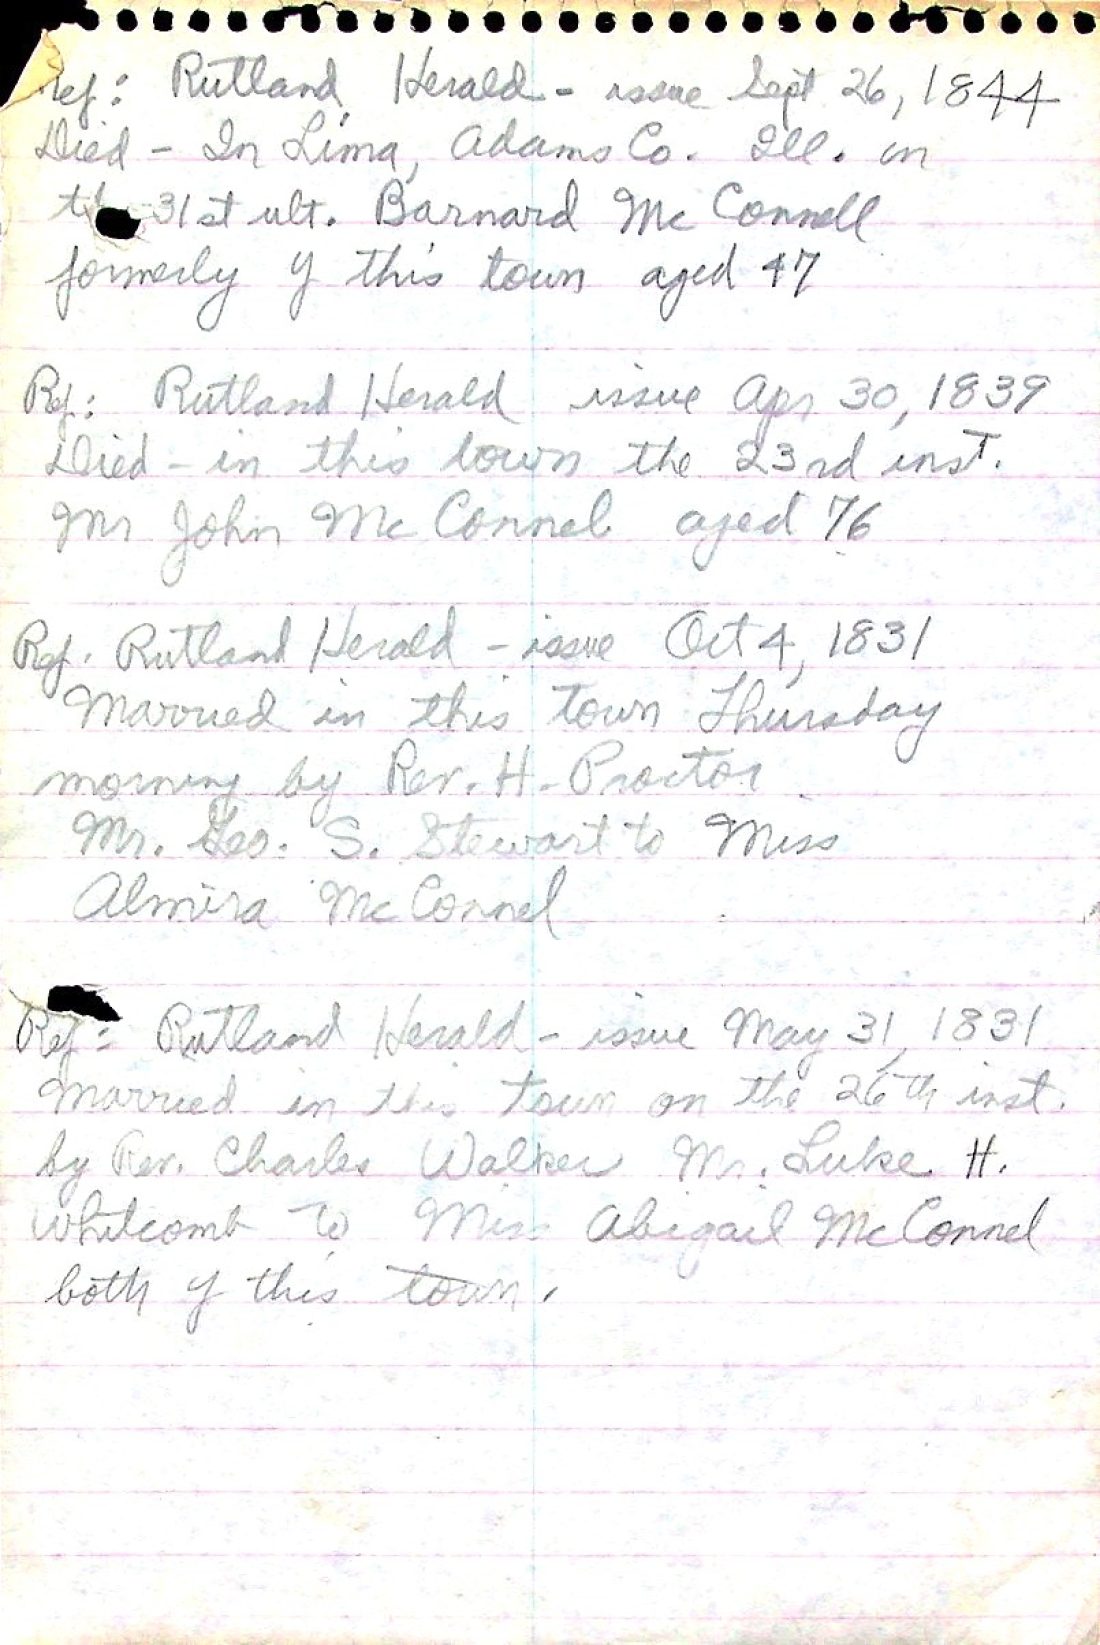 ref: Rutland Herald - issue Sept 26, 1844
Died - In Lima, Adams Co. Ill. on
the 31st ult. Barnard McConnell
formerly of this town aged 47
Ref: Rutland Herald issue Apr 30, 1839
Died - in this town the 23rd inst.
Mr John McConnel aged 76
Ref. Rutland Herald - issue Oct 4, 1831
Married in this town Thursday
morning by Rev. H. Proctor
Mr. Geo. S. Stewart to Miss
Almira McConnel
Ref: Rutland Herald - issue May 31, 1831
Married in this town on the 26th inst.
by Rev. Charles Walker Mr. Luke H.
Whitcomb to Miss Abigail McConnel
both of this town.